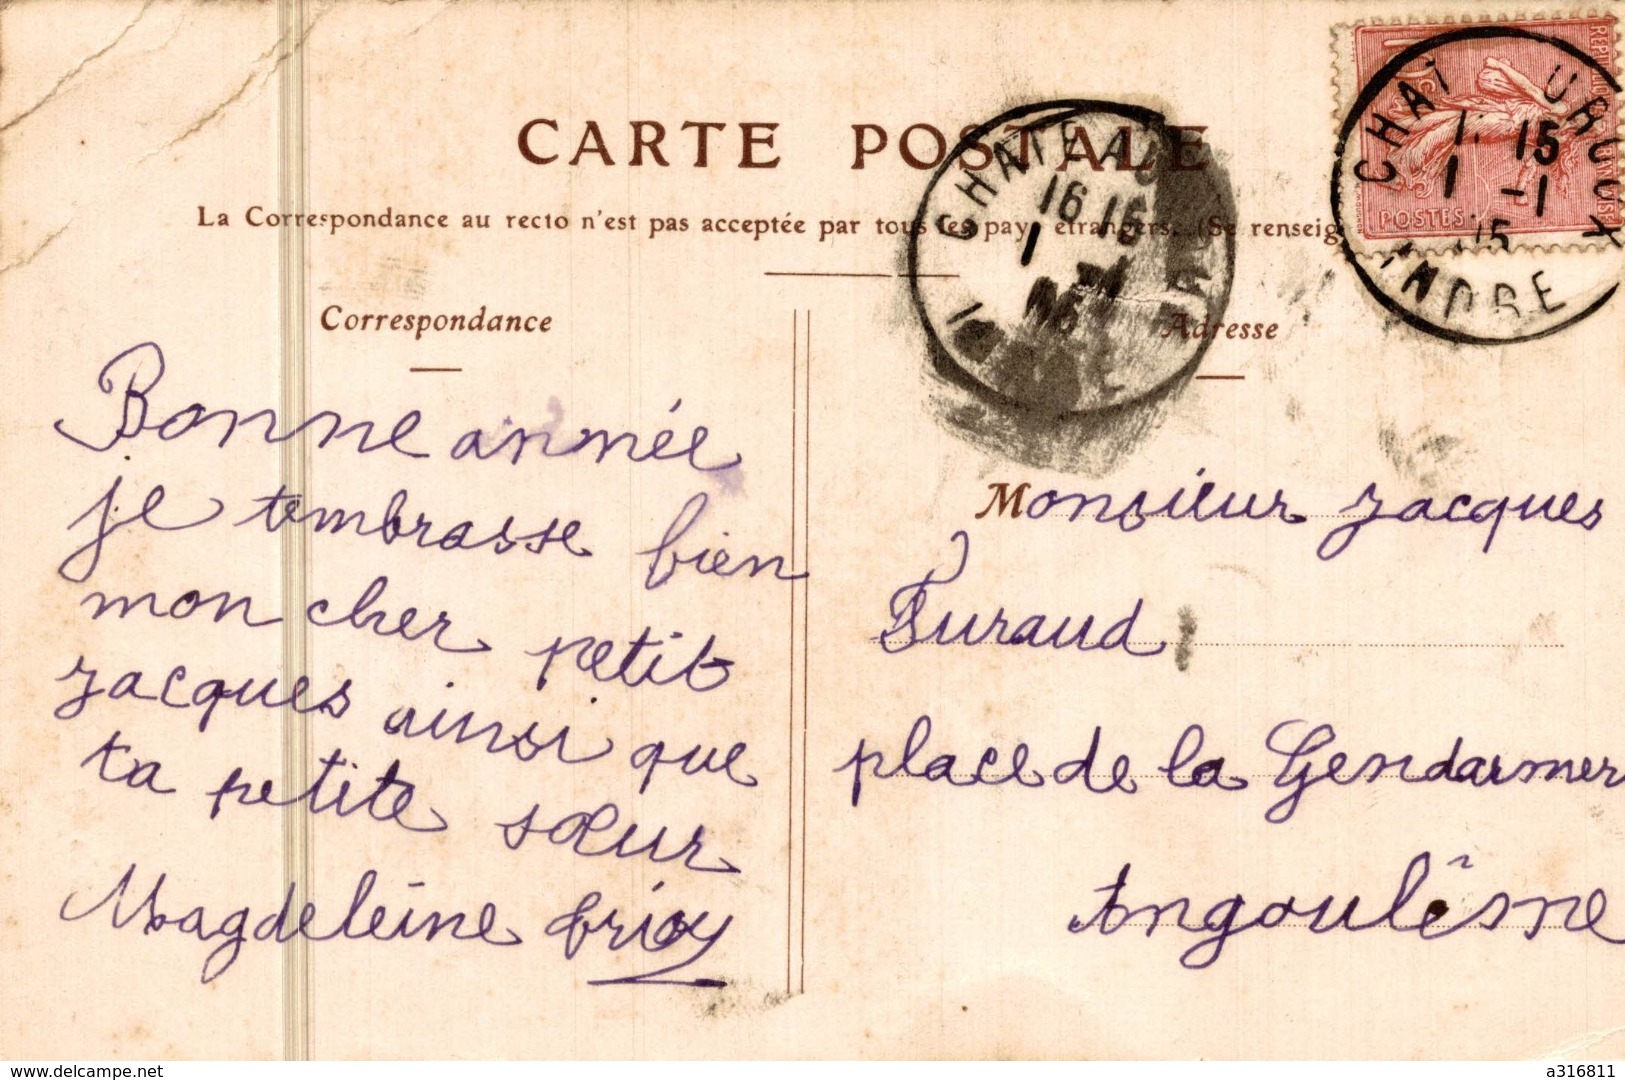 CARTE POSTALE
La Correspondance au recto n'est pas acceptée par tous les pays étrangers. (Se renseig
CHATEAU
16 15
1
CHAT UROUX
15
1 -1
INDRE
POSTES
Correspondance
Adresse
Bonne année
je tembrasse bien
mon cher petit
jacques ainsi que
ta petite sœur
Magdeleine
Monsieur jacques
Furaud
place de la Gendarmer
Angoulêsme
www.delcampe.net
a316811